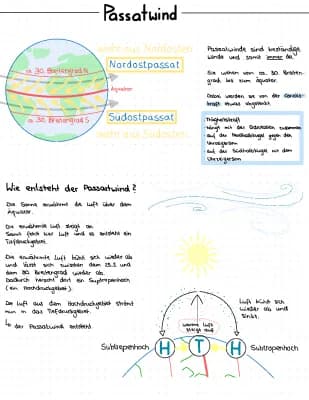 Passatwind
weht aus Nordosten
Nordostpassat
ca. 30. Breitengrad N
Äquator
ca. 30. Breitengrad S
Südostpassat
weht aus Südosten
Passatwinde sind beständige
Winde und somit immer da.
Sie wehen vom ca. 30. Breiten-
grad bis zum Äquator.
Dabei werden sie von der Coriolis-
kraft etwas abgelenkt.
Trägheitskraft
hängt mit der Erdrotation zusammen
auf der Nordhalbkugel gegen den
Uhrzeigersinn
auf der Südhalbkugel mit dem
Uhrzeigersinn
Wie entsteht der Passatwind?
Die Sonne erwärmt die Luft über dem
Äquator.
Die erwärmte Luft steigt an.
Somit fehlt hier Luft und es entsteht ein
Tiefdruckgebiet.
Die erwärmte Luft kühlt sich wieder ab
und lässt sich zwischen dem 25. und
dem 30. Breitengrad wieder ab.
Dadurch herrscht dort ein Suptropenhoch
(ein Hochdruckgebiet).
Die Luft aus dem Hochdruckgebiet strömt
nun in das Tiefdruckgebiet.
↳ der Passatwind entsteht
warme Luft
steigt auf
Luft kühlt sich
wieder ab und
sinkt.
Subtropenhoch
H
T
H
Subtropenhoch